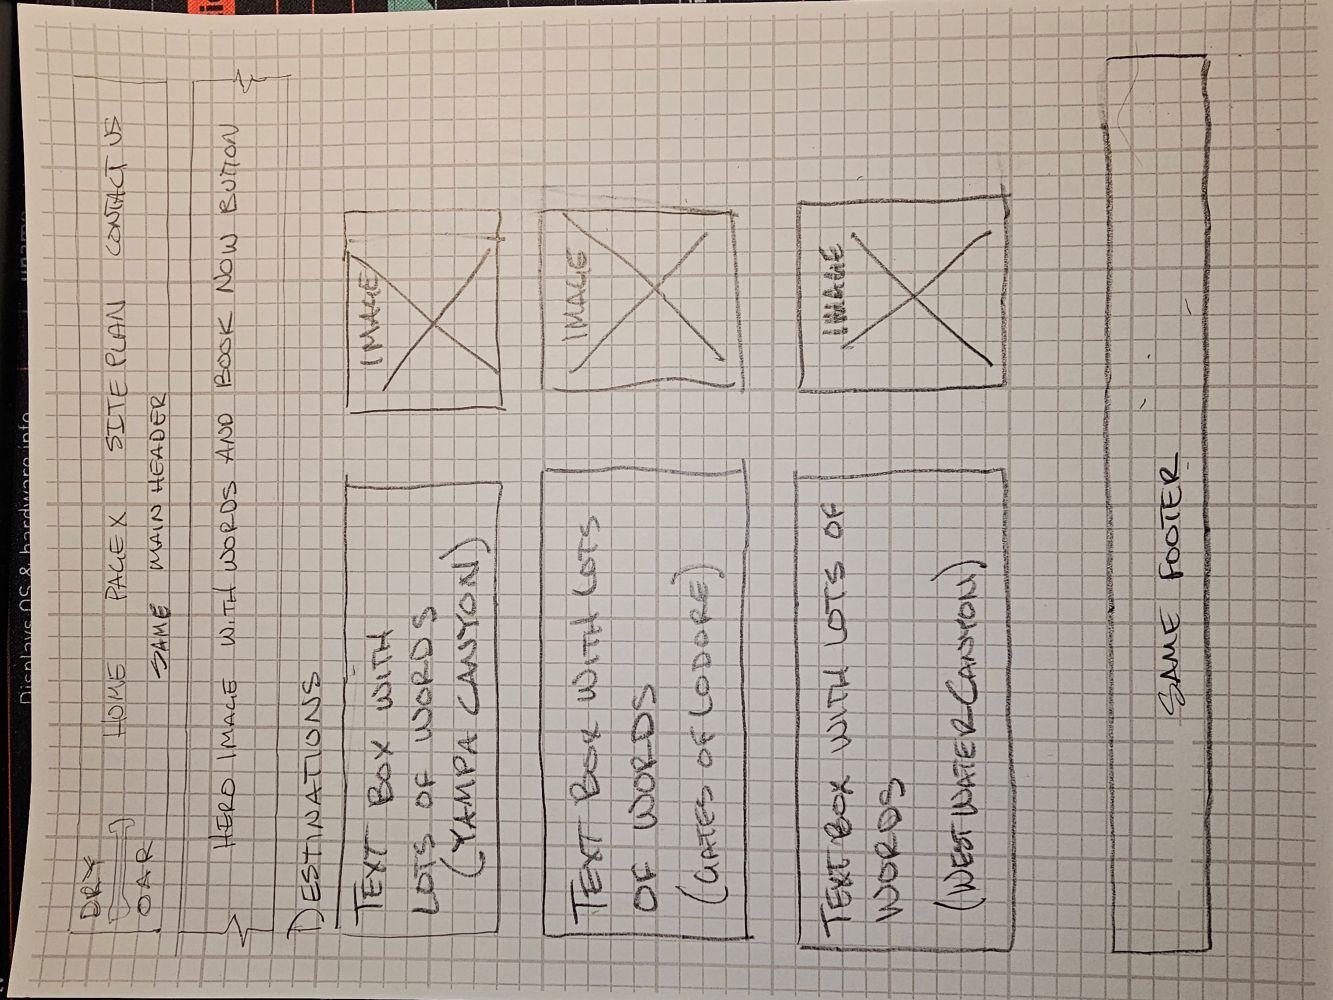 Displays OS & hardware info
uname
DRY
OAR
HOME PAGE X SITE PLAN CONTACT US
SAME MAIN HEADER
HERO IMAGE WITH WORDS AND BOOK NOW BUTTON
DESTINATIONS
TEXT BOX WITH
LOTS OF WORDS
(YAMPA CANYON)
IMAGE
TEXT BOX WITH LOTS
OF WORDS
(GATES OF LODORE)
IMAGE
TEXT BOX WITH LOTS OF
WORDS
(WESTWATER CANYON)
IMAGE
SAME FOOTER